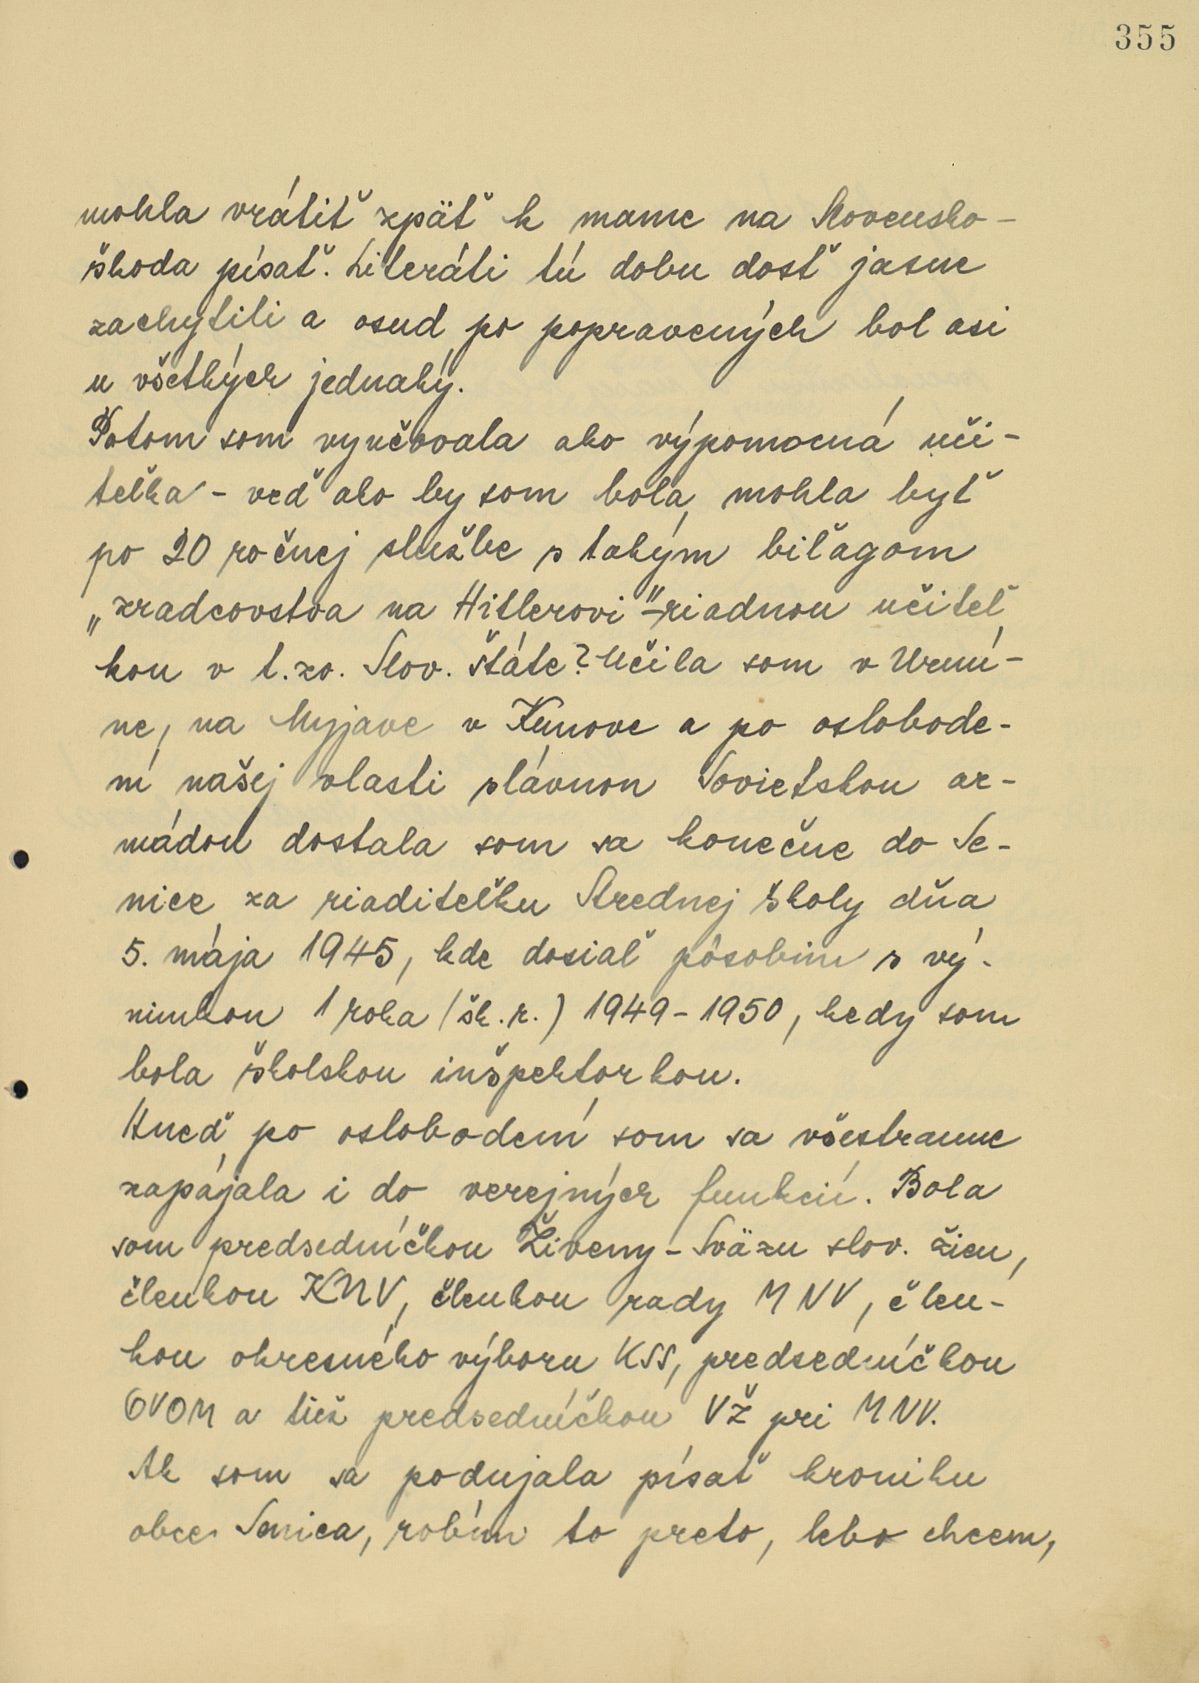 355
mohla vrátiť zpäť k mame na Slovensko –
škoda písať. Literáti tú dobu dosť jasne
zachytili a osud po popravených bol asi
u všetkých jednaký.
Potom som vyučovala ako výpomocná uči-
teľka – veď ako by som bola mohla byť
po 20 ročnej službe s takým biľagom
„zradcovstva na Hitlerovi" – riadnou učiteľ
kou v t.zv. Slov. štáte? Učila som v
ne, na Myjave v Kunove a po oslobode-
ní našej vlasti slávnou Sovietskou ar-
mádou dostala som sa konečne do Se-
nice za riaditeľku Strednej školy dňa
5. mája 1945, kde dosiaľ pôsobím s vý-
nimkou 1 roka /šk. r.) 1949 – 1950, kedy som
bola školskou inšpektorkou.
Hneď po oslobodení som sa všestranne
zapájala i do verejných funkcií. Bola
som predsedníčkou Živeny – Sväzu slov. žien,
členkou KNV, členkou rady MNV, člen-
kou okresného výboru KSS, predsedníčkou
OVOM a tiež predsedníčkou VŽ pri MNV.
Ak som sa podujala písať kroniku
obce Senica, robím to preto, lebo chcem,